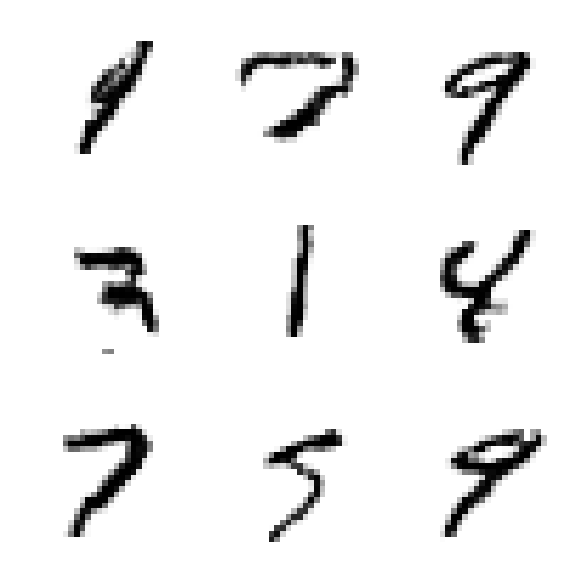 9 7 9
3 1 4
7 5 9